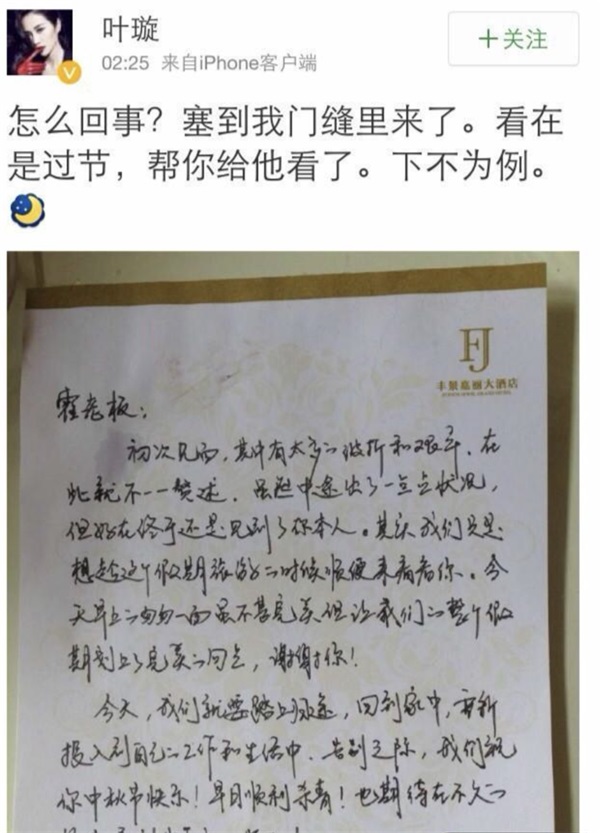 叶璇
+关注
02:25 来自iPhone客户端
怎么回事？塞到我门缝里来了。看在
是过节，帮你给他看了。下不为例。
FJ
丰景嘉丽大酒店
霍老板：
初次见面，其中有太多的波折和艰辛，在
此就不一一赘述，虽然中途出了一点点状况，
但好在终于还是见到了你本人。其实我们只是
想趁这个假期旅游的时候顺便来看看你。今
天早上的匆匆一面虽不甚完美但让我们的整个假
期划上了完美的句点，谢谢你！
今天，我们就要踏上归途，回到家中，重新
投入到自己的工作和生活中，告别之际，我们祝
你中秋节快乐！早日顺利杀青！也期待在不久的